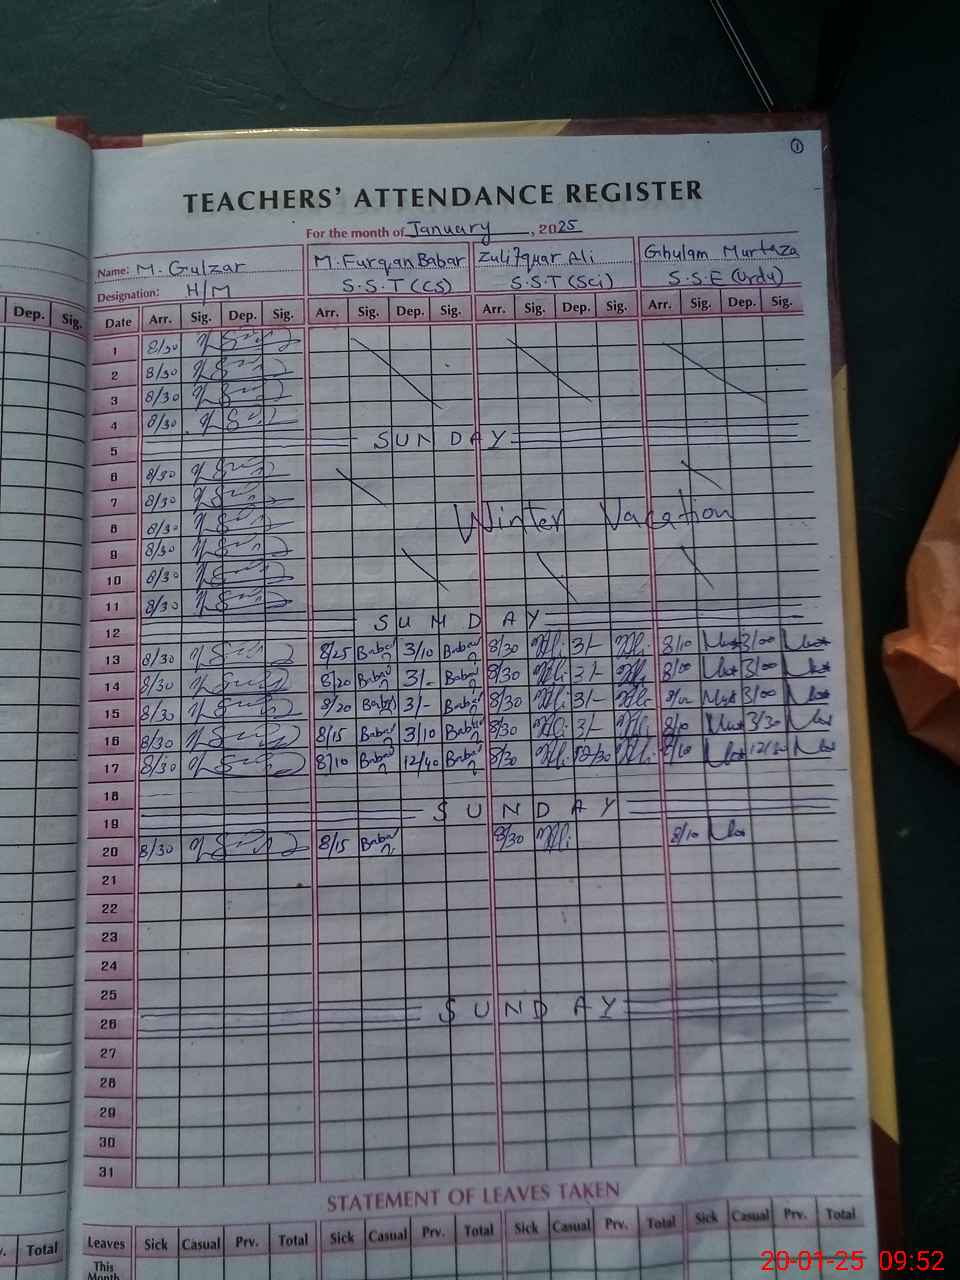 1
TEACHERS' ATTENDANCE REGISTER
For the month of January, 2025
Name: M. Gulzar M. Furqan Babar Zulifquar Ali Ghulam Murtaza
Designation: H/M S.S.T (CS) S.S.T (Sci) S.S.E (Urdu)
Dep. Sig. Date Arr. Sig. Dep. Sig. Arr. Sig. Dep. Sig. Arr. Sig. Dep. Sig. Arr. Sig. Dep. Sig.
1 8/30
2 8/30
3 8/30
4 8/30
5 SUNDAY
6 8/30
7 8/30
8 8/30 Winter Vacation
9 8/30
10 8/30
11 8/30
12 SUMDAY
13 8/30 8/25 Babar 3/10 Babar 8/30 3/- 8/10 3/00
14 8/30 8/20 Babar 3/- Babar 8/30 3/- 8/00 3/00
15 8/30 8/20 Babar 3/- Babar 8/30 3/- 3/00
16 8/30 8/15 Babar 3/10 Babar 8/30 3/- 8/10 3/30
17 8/30 8/10 Babar 12/40 Babar 8/30 8/10
18
19 SUNDAY
20 8/30 8/15 Babar 8/30 8/10
21
22
23
24
25
26 SUNDAY
27
28
29
30
31
STATEMENT OF LEAVES TAKEN
Total Leaves Sick Casual Prv. Total Sick Casual Prv. Total Sick Casual Prv. Total Sick Casual Prv. Total
This
Month
20-01-25 09:52